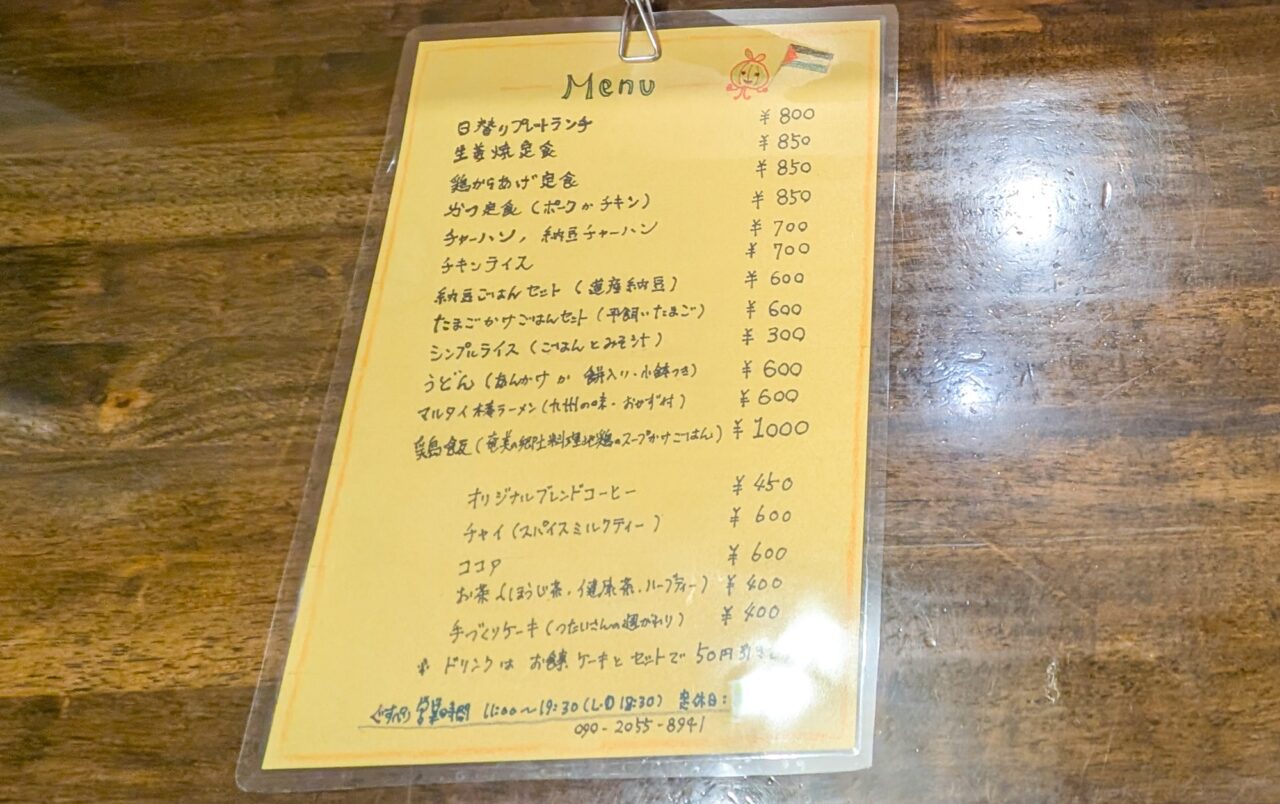 Menu
日替りプレートランチ ¥800
生姜焼定食 ¥850
鶏からあげ定食 ¥850
かつ定食(ポークかチキン) ¥850
チャーハン,納豆チャーハン ¥700
チキンライス ¥700
納豆ごはんセット(道産納豆) ¥600
たまごかけごはんセット(平飼いたまご) ¥600
シンプルライス(ごはんとみそ汁) ¥300
うどん(あんかけか 餅入り・小鉢つき) ¥600
マルタイ棒ラーメン(九州の味・おかず付) ¥600
鶏飯(奄美の郷土料理地鶏のスープかけごはん) ¥1000
オリジナルブレンドコーヒー ¥450
チャイ(スパイスミルクティー) ¥600
ココア ¥600
お茶(ほうじ茶・健康茶・ハーブティー) ¥400
手づくりケーキ(つたいさんの週がわり) ¥400
* ドリンクは お食事 ケーキと セットで 50円引き
営業時間 11:00~19:30(L.O 18:30) 定休日:
090-2055-8941